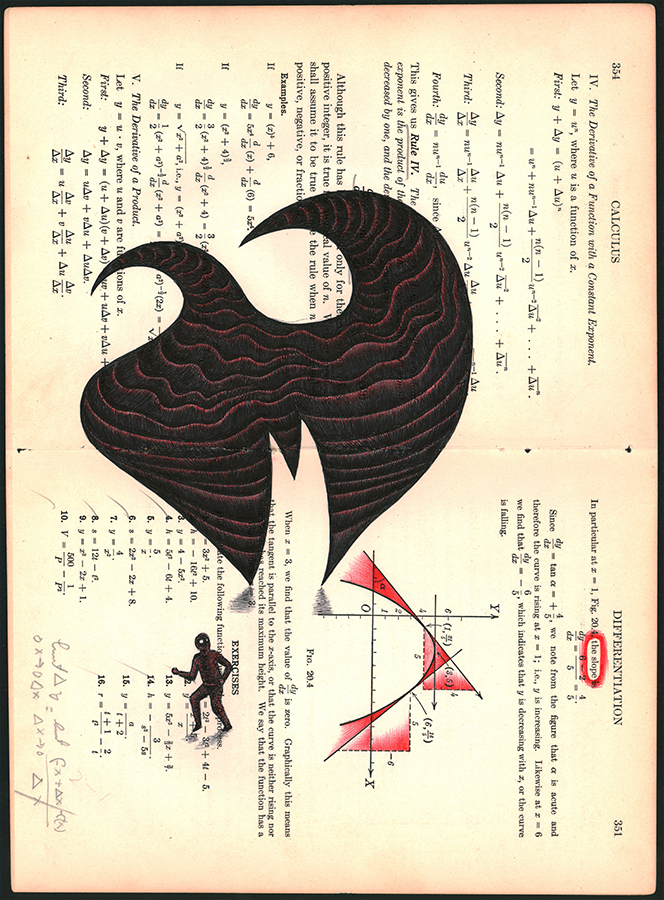 354 CALCULUS
IV. The Derivative of a Function with a Constant Exponent.
Let y = uⁿ, where u is a function of x.
First: y + Δy = (u + Δu)ⁿ
= uⁿ + nuⁿ⁻¹Δu + n(n − 1)/2 uⁿ⁻²Δu² + . . . + Δuⁿ.
Second: Δy = nuⁿ⁻¹ Δu + n(n − 1)/2 uⁿ⁻² Δu² + . . . + Δuⁿ.
Third: Δy/Δx = nuⁿ⁻¹ Δu/Δx + n(n − 1)/2 uⁿ⁻² Δu Δu
Fourth: dy/dx = nuⁿ⁻¹ du/dx since
This gives us Rule IV. The
exponent is the product of the
decreased by one, and the de
Although this rule has only for the
positive integer, it is true al value of n. W
shall assume it to be true the rule when n
positive, negative, or fraction
Examples.
If y = (x)⁵ + 6,
dy/dx = 5x⁴ d/dx (x) + d/dx (6) = 5x⁴.
If y = (x² + 4)^(3/2),
dy/dx = 3/2 (x² + 4)^(1/2) d/dx (x² + 4) = 3/2 (x²
If y = √(x² + a²), i.e., y = (x² + a²)
dy/dx = 1/2 (x² + a²)^(−1/2) d/dx (x² + a²) = a²)^(−1/2)(2x) =
V. The Derivative of a Product.
Let y = u · v, where u and v are functions of x.
First: y + Δy = (u + Δu)(v + Δv) uv + uΔv + vΔu +
Second: Δy = uΔv + vΔu + ΔuΔv.
Third: Δy/Δx = u Δv/Δx + v Δu/Δx + Δu Δv/Δx.
DIFFERENTIATION 351
In particular at x = 1, Fig. 20.4, the slope
dy/dx = 6 − 2/5 = 4/5
Since dy/dx = tan α = + 4/5, we note from the figure that α is acute and
therefore the curve is rising at x = 1; i.e., y is increasing. Likewise at x = 6
we find that dy/dx = − 6/5, which indicates that y is decreasing with x, or the curve
is falling.
Y
6
4
2
O
1
2
4
X
α
5
4
(3,5)
5
−6
Fig. 20.4
When x = 3, we find that the value of dy/dx is zero. Graphically this means
that the tangent is parallel to the x-axis, or that the curve is neither rising nor
has reached its maximum height. We say that the function has a
EXERCISES
ate the following functions
3x² + 5.
h = −16t² + 10.
3. y = 4 − 5x².
4. h = 5t² − 6t + 4.
5. y = 5/x
6. s = 2x² − 2x + 8.
7. y = 4/x²
8. s = 12t − t².
9. y = x² − 2x + 1.
10. V = 500/P −
= 2t³ − 3t² + 4t − 5.
13. y = 5x² −
14. h = − 3/(s² − 5s)
15. y = a/(t + 2).
16. r = (t + 1)/t² − 2/t.